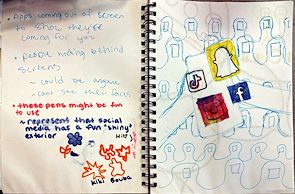 - Apps coming out of screen
to show they're
coming for you
- people hiding behind
screens
- could be anyone
- cant see their faces
• these pens might be fun
to use
• represent that social
media has a fun "shiny"
exterior
Kiki Bouba